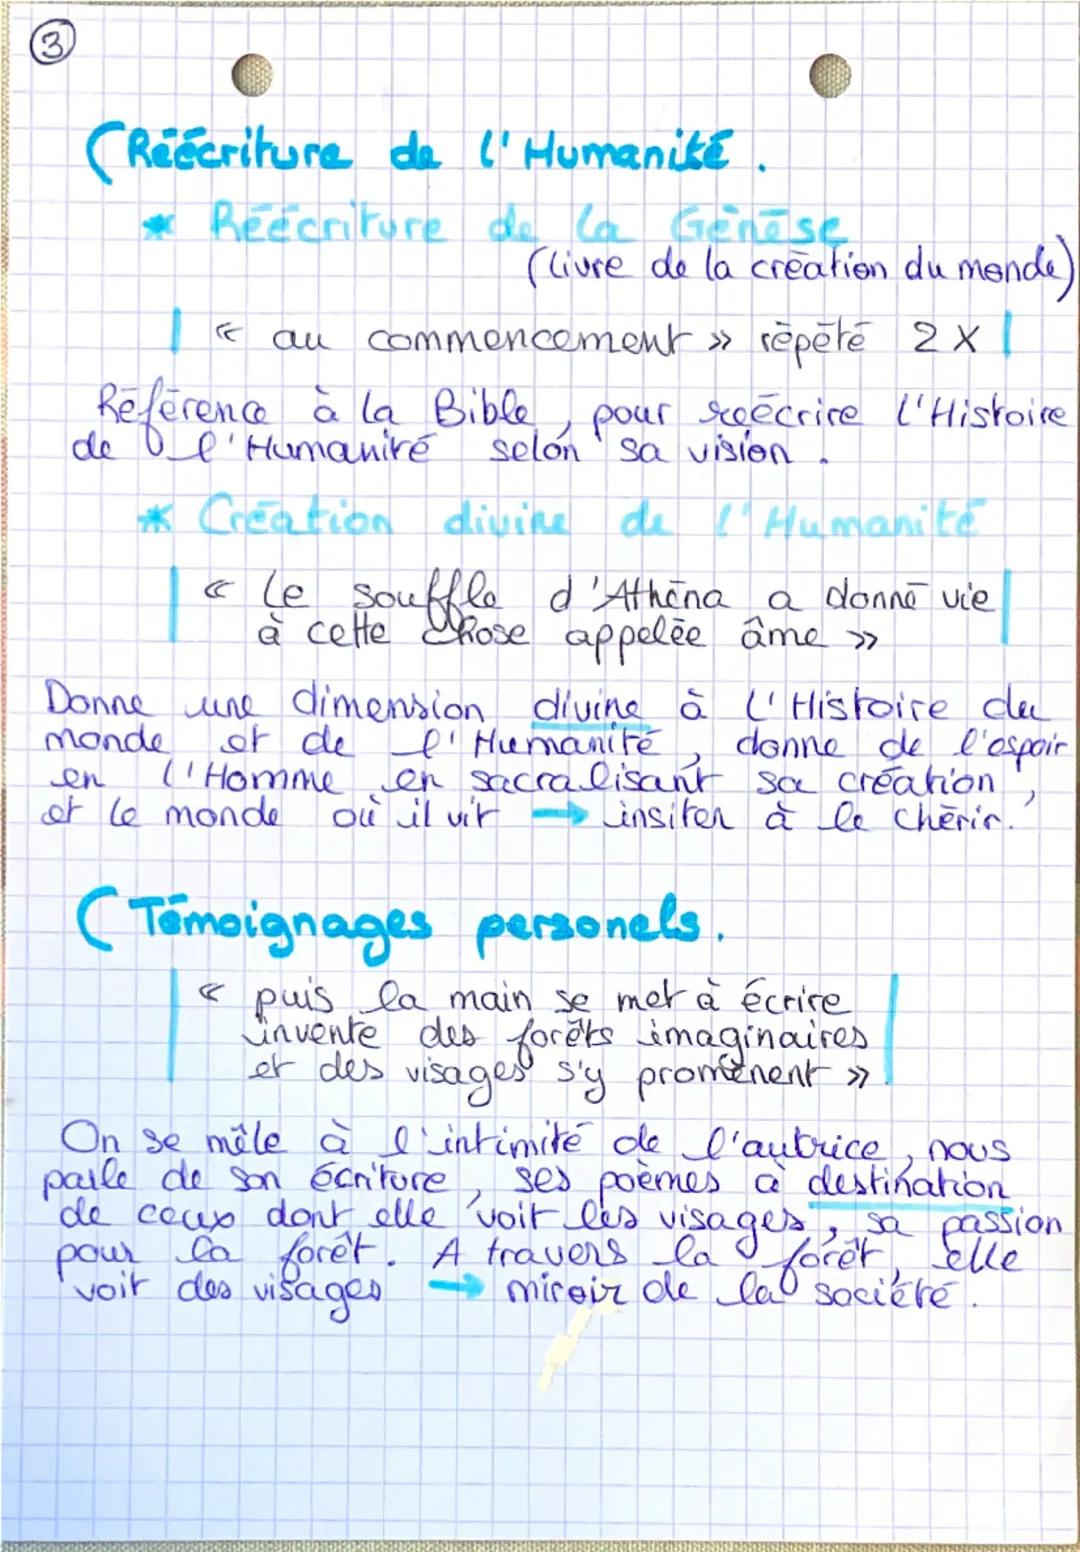 3
(Réécriture de l'Humanité.
* Réécriture de la Génèse
(livre de la création du monde)
« au commencement » répété 2 X
Référence à la Bible, pour reécrire l'Histoire
de l'Humanité selon sa vision.
* Création divine de l'Humanité
« le souffle d'Athéna a donné vie
à cette chose appelée âme »
Donne une dimension divine à l'Histoire du
monde et de l'Humanité, donne de l'espoir
en l'Homme en sacralisant sa création,
et le monde où il vit → insiter à le chérir.
(Témoignages personels.
« puis la main se met à écrire
invente des forêts imaginaires
et des visages s'y promènent ».
On se mêle à l'intimité de l'autrice, nous
parle de son écriture, ses poèmes à destination
de ceux dont elle voit les visages, sa passion
pour la forêt. A travers la forêt, elle
voit des visages → miroir de la société.